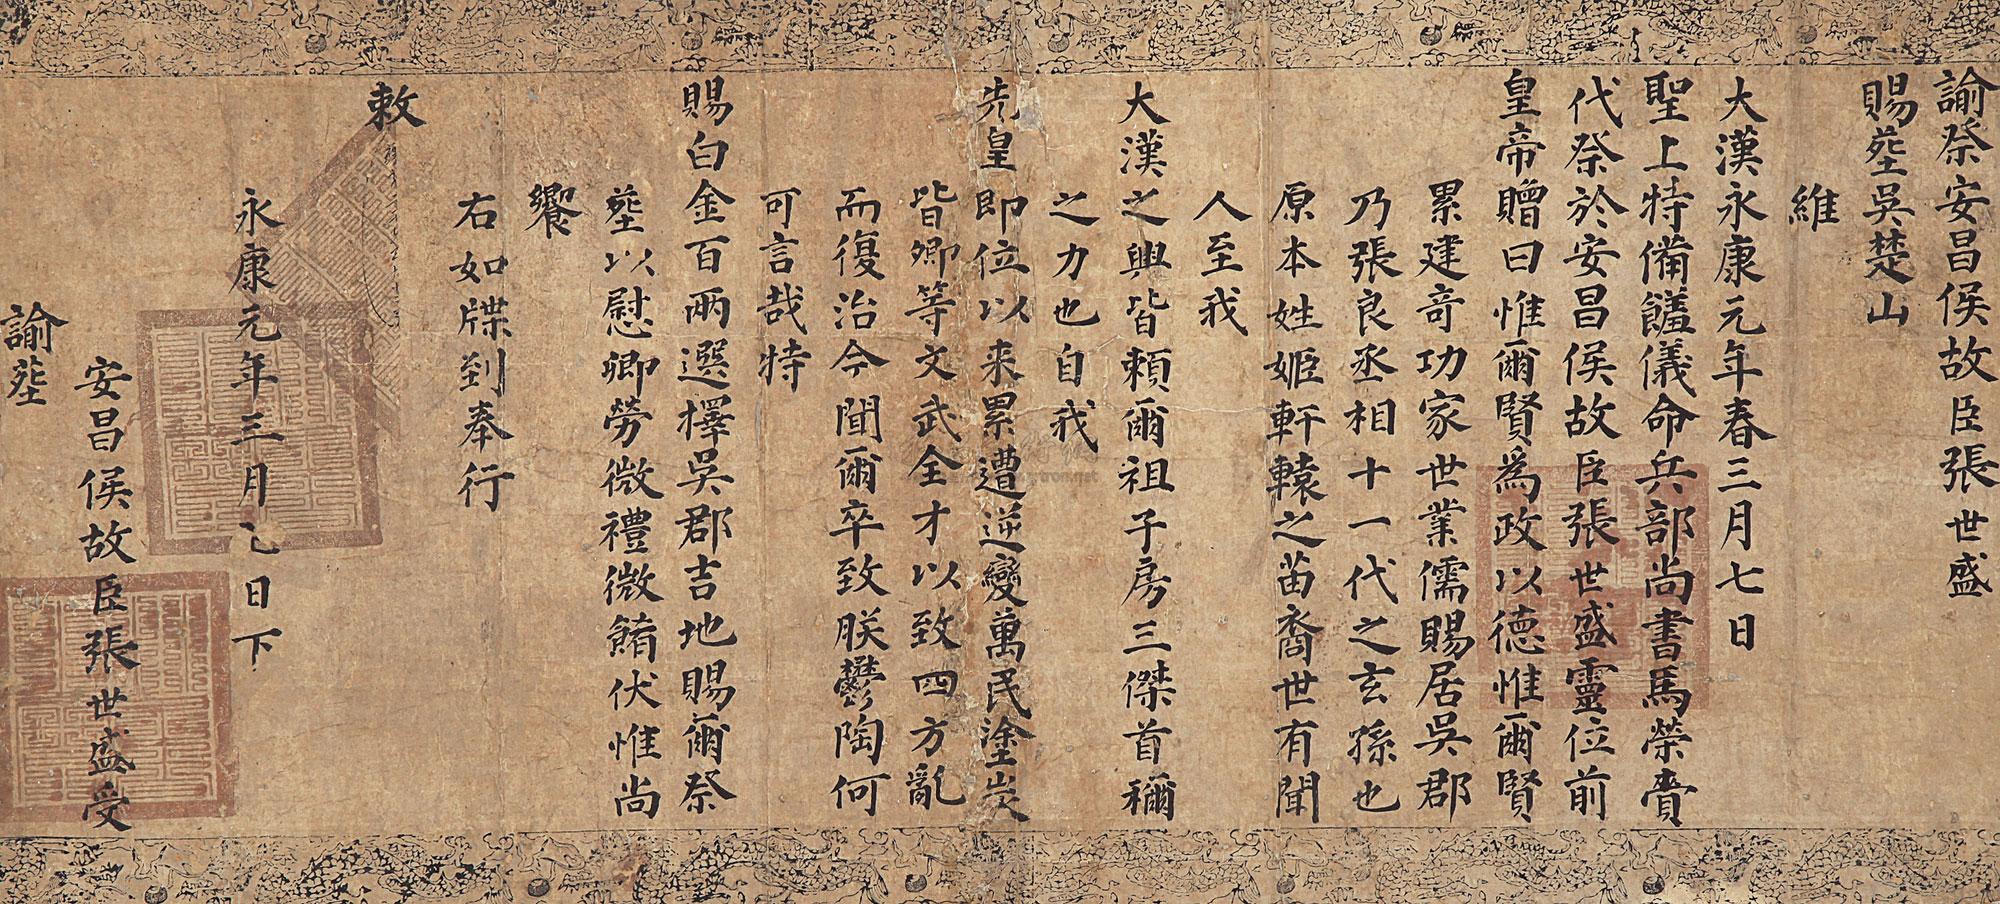 諭祭安昌侯故臣張世盛
賜塟吳楚山
維
大漢永康元年春三月七日
聖上特備饈儀命兵部尚書馬榮賫
代祭於安昌侯故臣張世盛靈位前
皇帝贈曰惟爾賢為政以德惟爾賢
累建竒功家世業儒賜居吳郡
乃張良丞相十一代之玄孫也
原本姓姬軒轅之苗裔世有聞
人至我
大漢之興皆賴爾祖子房三傑首稱
之力也自我
先皇即位以来累遭逆變萬民塗炭
皆卿等文武全才以致四方亂
而復治今聞爾卒致朕鬱陶何
可言哉特
賜白金百兩選擇吳郡吉地賜爾祭
塟以慰卿勞微禮微餚伏惟尚
饗
右如牒到奉行
敕
永康元年三月乙日下
安昌侯故臣張世盛受
諭塟